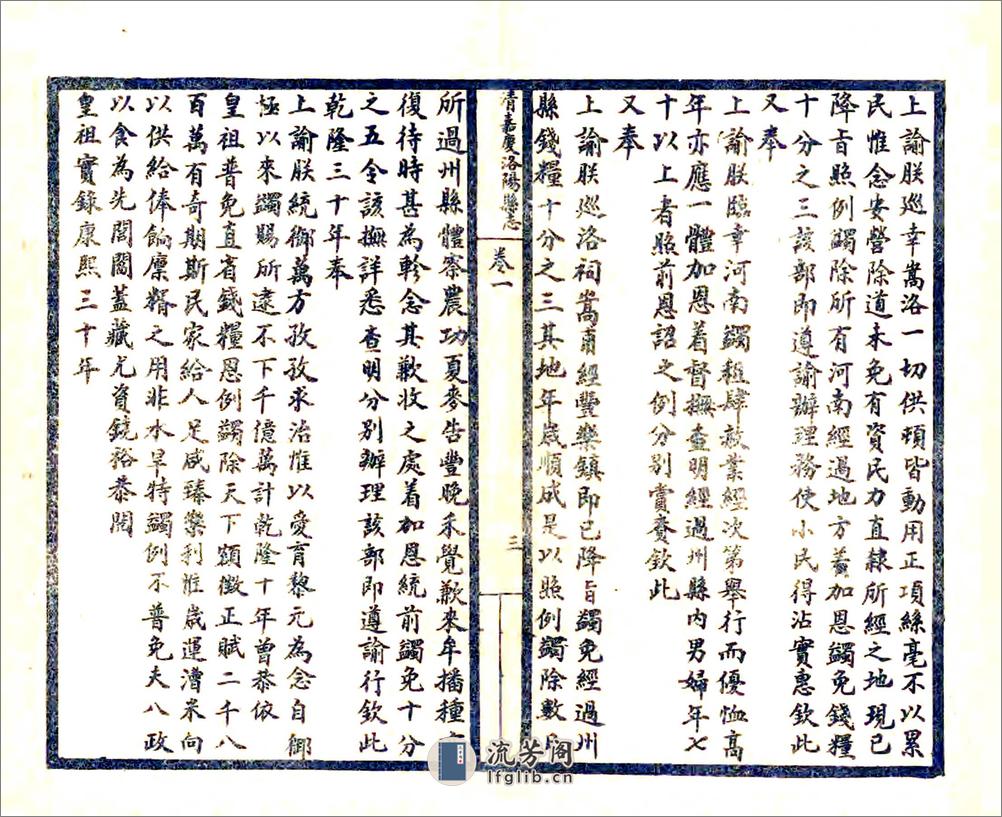 上諭朕巡幸嵩洛一切供頓皆動用正項絲毫不以累
民惟念安營除道未免有資民力直隸所經之地現已
降旨照例蠲除所有河南經過地方着加恩蠲免錢糧
十分之三該部即遵諭辦理務使小民得沾實惠欽此
又奉
上諭朕臨幸河南蠲租肆赦業經次第舉行而優恤高
年亦應一體加恩着督撫查明經過州縣內男婦年七
十以上者照前恩詔之例分別賞賚欽此
又奉
上諭朕巡洛祠嵩甫經豐樂鎮即已降旨蠲免經過州
縣錢糧十分之三其地年歲順成是以照例蠲除數
清嘉慶洛陽縣志
卷一
三
所過州縣體察農功夏麥告豐晚禾覺歉來牟播種
復待時甚為軫念其歉收之處着加恩統前蠲免十分
之五令該撫詳悉查明分別辦理該部即遵諭行欽此
乾隆三十年奉
上諭朕統御萬方孜孜求治惟以愛育黎元為念自御
極以來蠲賜所逮不下千億萬計乾隆十年曾恭依
皇祖普免直省錢糧恩例蠲除天下額徵正賦二千八
百萬有奇期斯民家給人足咸臻樂利惟歲運漕米向
以供給俸餉廩糈之用非水旱特蠲例不普免夫八政
以食為先閭閻蓋藏尤資饒裕恭閱
皇祖實錄康熙三十年
流芳閣
lfglib.cn